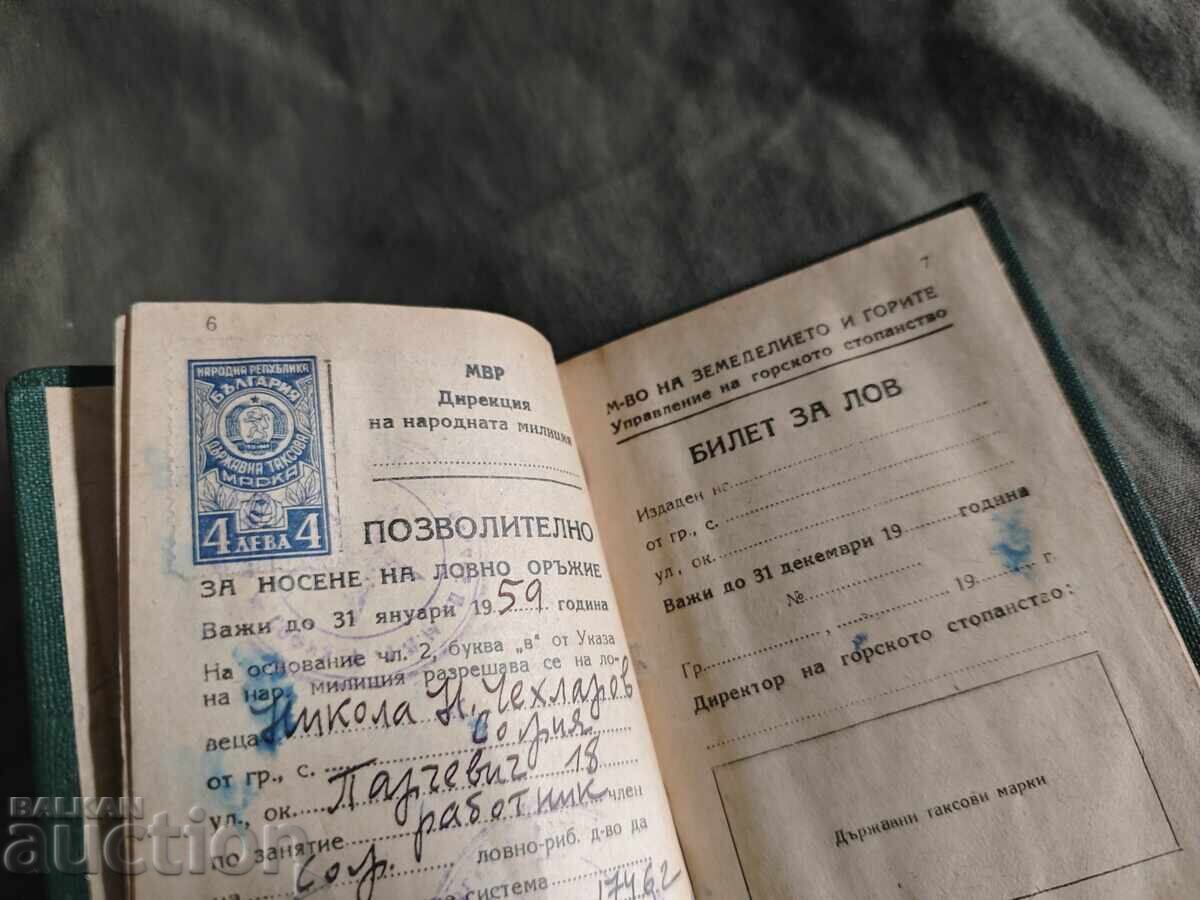 6
НАРОДНА РЕПУБЛИКА
БЪЛГАРИЯ
ДЪРЖАВНА ТАКСОВА
МАРКА
4 4
ЛЕВА
МВР
Дирекция
на народната милиция
ПОЗВОЛИТЕЛНО
ЗА НОСЕНЕ НА ЛОВНО ОРЪЖИЕ
Важи до 31 януари 1959 година
На основание чл. 2, буква „в" от Указа
на нар. милиция разрешава се на ло-
веца Никола Н. Чехларов
от гр., с. София
ул., ок. Парчевич 18
по занятие работник член
на Соф. ловно-риб. д-во да
система 17462
7
М-ВО НА ЗЕМЕДЕЛИЕТО И ГОРИТЕ
Управление на горското стопанство
БИЛЕТ ЗА ЛОВ
Издаден на
от гр., с.
ул., ок.
Важи до 31 декември 19 година
№
Гр. , 19 г.
Директор на горското стопанство:
Държавни таксови марки
BALKAN
auction